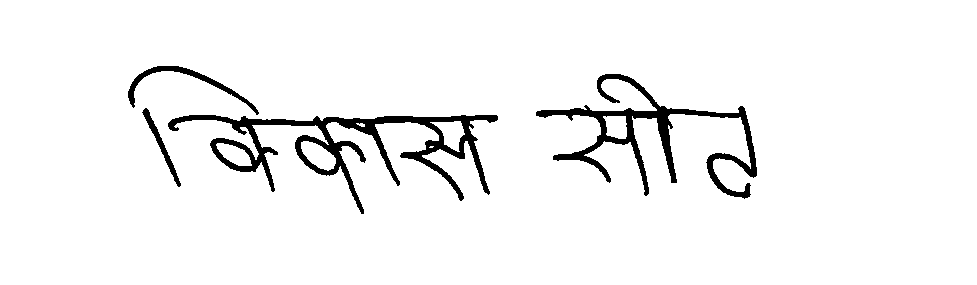 विकास सीट